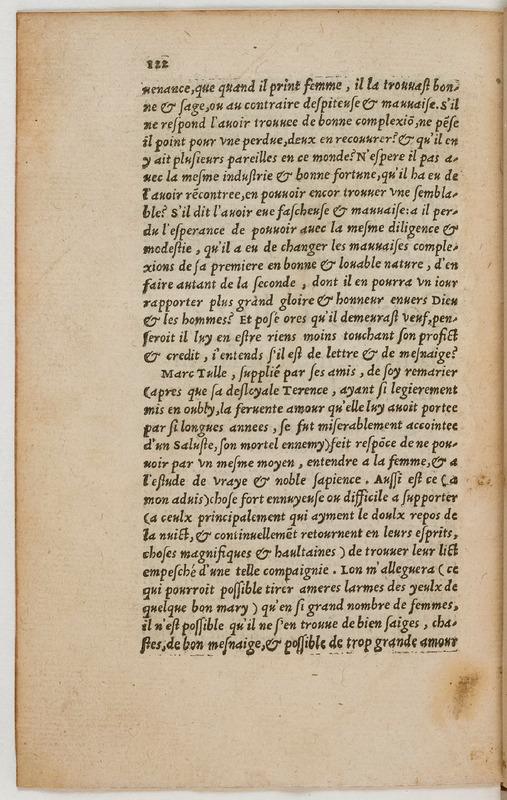 122
uenance,que quand il print femme, il la trouuast bon-
ne & sage,ou au contraire despiteuse & mauuaise.S'il
ne respond l'auoir trouuee de bonne complexiō,ne pēse
il point pour vne perdue,deux en recouurer?& qu'il en
y ait plusieurs pareilles en ce monde?N'espere il pas a-
uec la mesme industrie & bonne fortune,qu'il ha eu de
l'auoir rēcontree,en pouuoir encor trouuer vne sembla-
ble? S'il dit l'auoir eue fascheuse & mauuaise:a il per-
du l'esperance de pouuoir auec la mesme diligence &
modestie, qu'il a eu de changer les mauuaises comple-
xions de sa premiere en bonne & louable nature, d'en
faire autant de la seconde, dont il en pourra vn iour
rapporter plus grād gloire & honneur enuers Dieu
& les hommes? Et posé ores qu'il demeurast veuf,pen-
seroit il luy en estre riens moins touchant son profict
& credit, i'entends s'il est de lettre & de mesnaige?
Marc Tulle, supplié par ses amis, de soy remarier
(apres que sa desloyale Terence, ayant si legierement
mis en oubly,la feruente amour qu'elle luy auoit portee
par si longues annees, se fut miserablement accointee
d'un Saluste,son mortel ennemy)feit respōce de ne pou-
uoir par vn mesme moyen, entendre a la femme,& a
l'estude de vraye & noble sapience. Aussi est ce (a
mon aduis)chose fort ennuyeuse ou difficile a supporter
(a ceulx principalement qui ayment le doulx repos de
la nuict,& continuellemēt retournent en leurs esprits,
choses magnifiques & haultaines) de trouuer leur lict
empesché d'une telle compaignie. Lon m'alleguera (ce
qui pourroit possible tirer ameres larmes des yeulx de
quelque bon mary) qu'en si grand nombre de femmes,
il n'est possible qu'il ne s'en trouue de bien saiges, cha-
stes,de bon mesnaige,& possible de trop grande amour